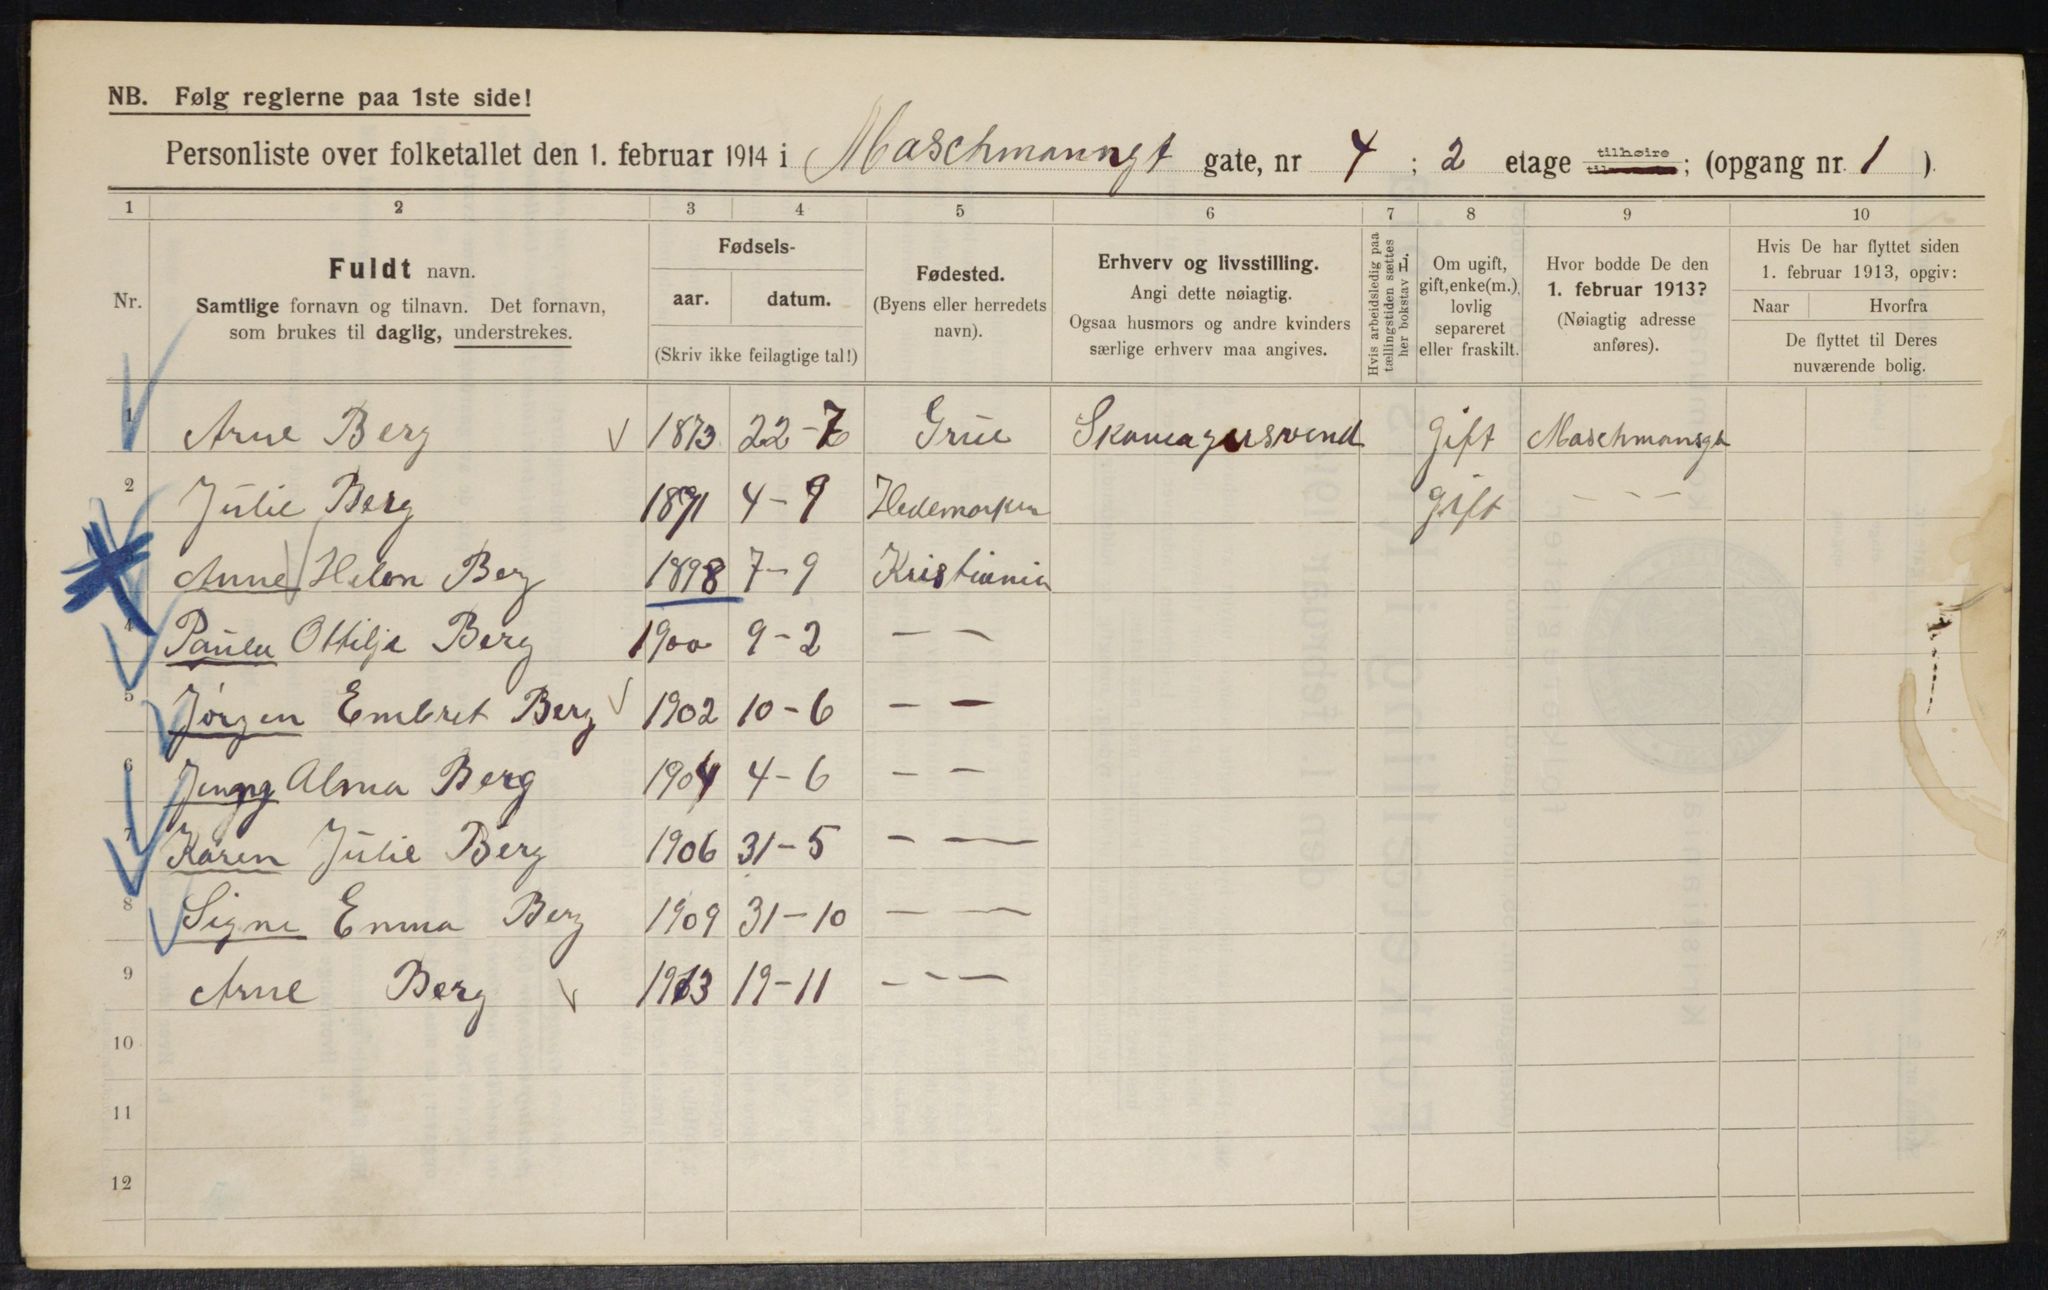 NB. Følg reglerne paa 1ste side!
Personliste over folketallet den 1. februar 1914 i Maschmanngt gate, nr 4 ; 2 etage tilhøire ; (opgang nr. 1 ).
1 2 3 4 5 6 7 8 9 10
Nr.
Fuldt navn.
Samtlige fornavn og tilnavn. Det fornavn,
som brukes til daglig, understrekes.
Fødsels-
aar. datum.
(Skriv ikke feilagtige tal!)
Fødested.
(Byens eller herredets
navn).
Erhverv og livsstilling.
Angi dette nøiagtig.
Ogsaa husmors og andre kvinders
særlige erhverv maa angives.
Hvis arbeidsledig paa
tællingstiden sættes
her bokstav L.
Om ugift,
gift, enke(m.),
lovlig
separeret
eller fraskilt.
Hvor bodde De den
1. februar 1913?
(Nøiagtig adresse
anføres).
Hvis De har flyttet siden
1. februar 1913, opgiv:
Naar Hvorfra
De flyttet til Deres
nuværende bolig.
1 Arne Berg 1873 22-7 Grue Skomagersvend Gift Maschmansgt
2 Julie Berg 1871 4-9 Hedemarken Gift — — —
3 Anne Helen Berg 1898 7-9 Kristiania
4 Paula Ottilje Berg 1900 9-2 — —
5 Jørgen Embret Berg 1902 10-6 — —
6 Jenny Alma Berg 1904 4-6 — —
7 Karen Julie Berg 1906 31-5 — —
8 Signe Emma Berg 1909 31-10 — —
9 Arne Berg 1913 19-11 — — —
10
11
12